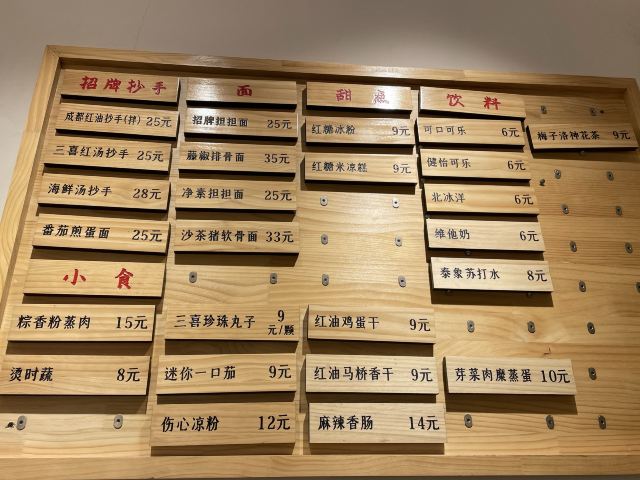 招牌抄手
成都红油抄手(拌) 25元
三喜红汤抄手 25元
海鲜汤抄手 28元
番茄煎蛋面 25元
面
招牌担担面 25元
藤椒排骨面 35元
净素担担面 25元
沙茶猪软骨面 33元
甜点
红糖冰粉 9元
红糖米凉糕 9元
饮料
可口可乐 6元
健怡可乐 6元
北冰洋 6元
维他奶 6元
泰象苏打水 8元
梅子洛神花茶 9元
小食
粽香粉蒸肉 15元
烫时蔬 8元
三喜珍珠丸子 9元/颗
迷你一口茄 9元
伤心凉粉 12元
红油鸡蛋干 9元
红油马桥香干 9元
麻辣香肠 14元
芽菜肉糜蒸蛋 10元